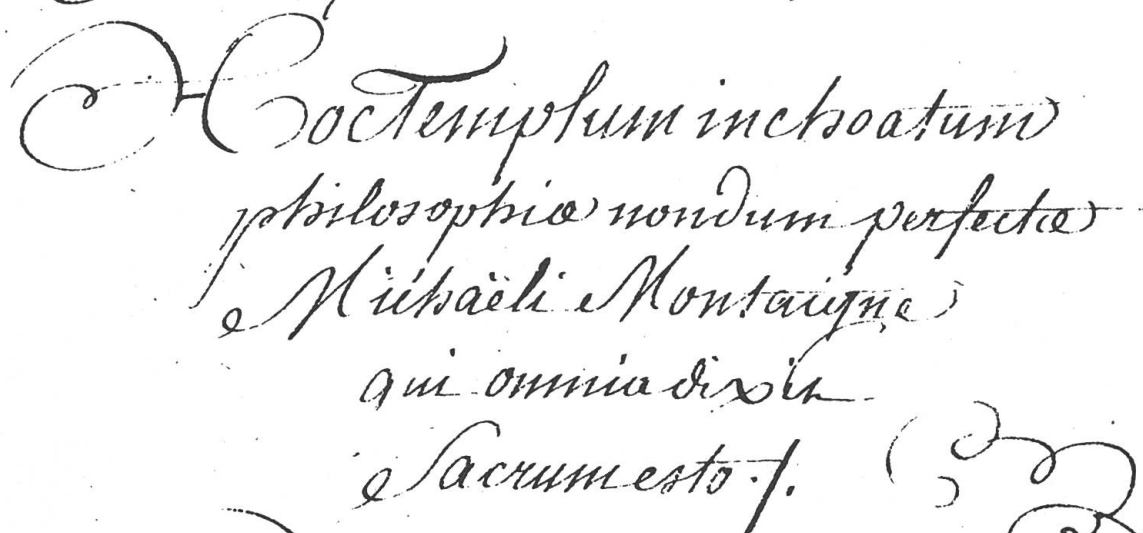 Hoc Templum inchoatum
philosophiæ nondum perfectæ
Michaëli Montaigne
qui omnia dixit
Sacrum esto ./.